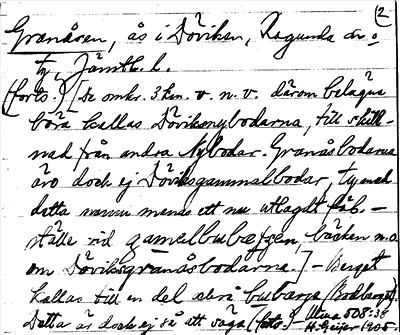 (2)
Granåsen, ås i Döviken, Ragunda sn o.
ty, Jämtl. l.
(forts.) [De omkr. 3 km. v. n. v. därom belägna
böra kallas Döviksnybodarna, till skill-
nad från andra Nybodar. Granåsbodarna
äro dock ej Döviksgammalbodar, ty med
detta namn menas ett nu utlagdt fäb.-
ställe vid gamalbubæsen, bäcken n.o.
om Döviksgranåsbodarna.] - Berget
kallas till en del också bubærje (Bodberget).
Detta är dock ej så att säga (forts.
Ulma 508:38
H. Geijer 1905.